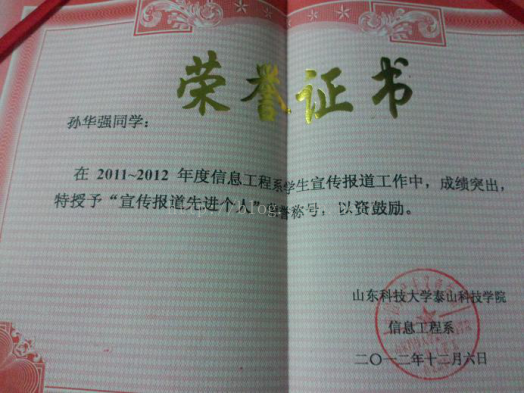 荣誉证书
孙华强同学：
在 2011~2012 年度信息工程系学生宣传报道工作中，成绩突出，
特授予“宣传报道先进个人”荣誉称号，以资鼓励。
山东科技大学泰山科技学院
信息工程系
二〇一二年十二月六日